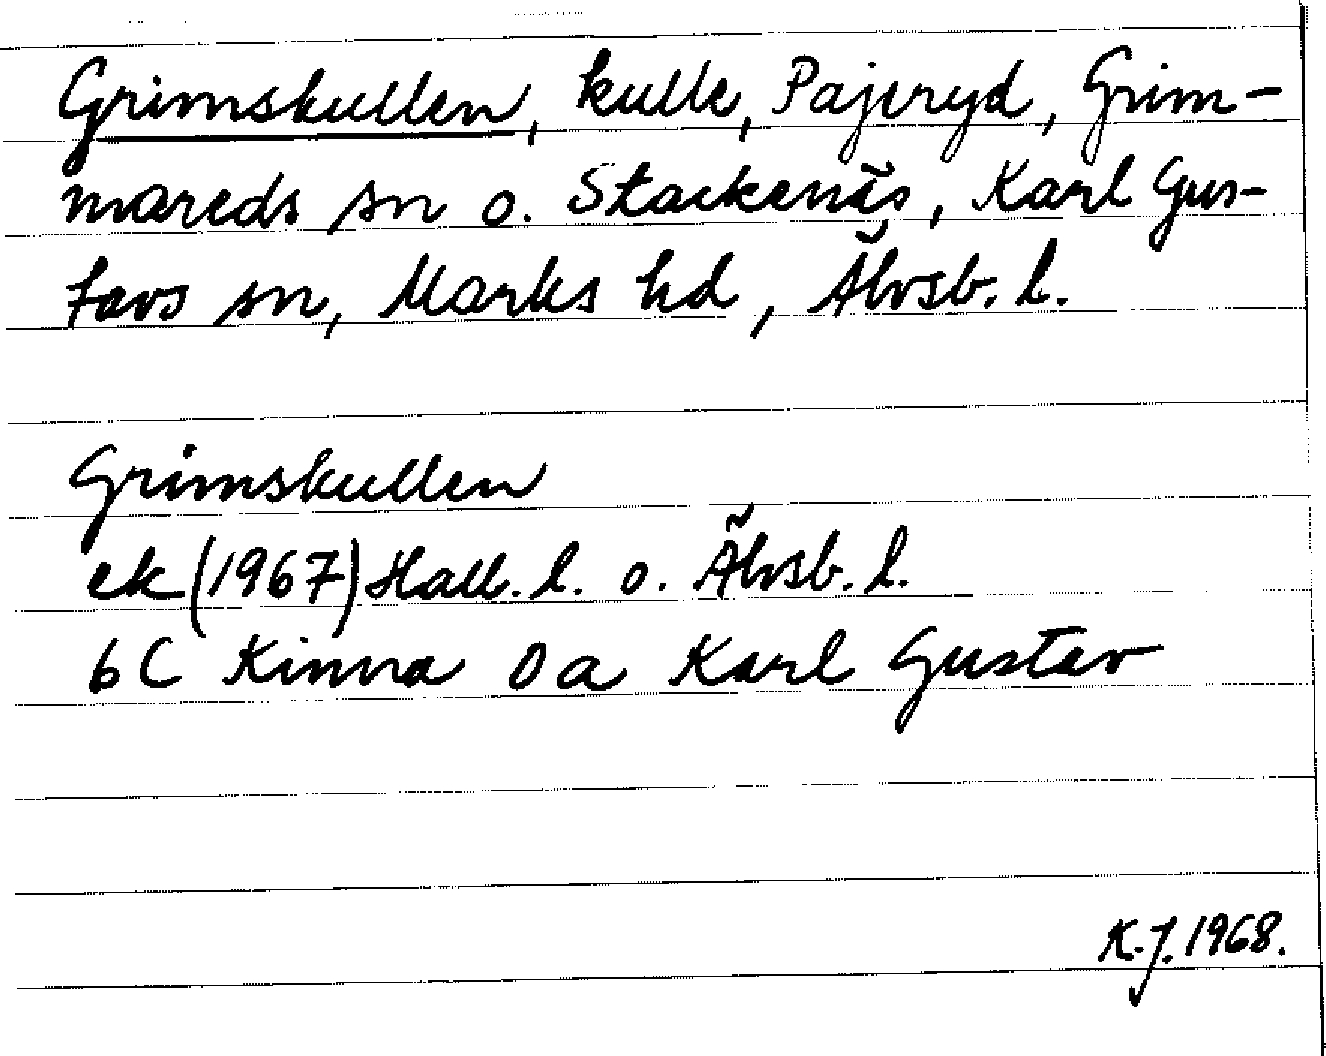 Grimskullen, kulle, Pajeryd, Grim-
mareds sn o. Stackenäs, Karl Gus-
tavs sn, Marks hd, Älvsb. l.
Grimskullen
ek (1967) Hall. l. o. Älvsb. l.
6C Kinna 0a Karl Gustav
K.J. 1968.